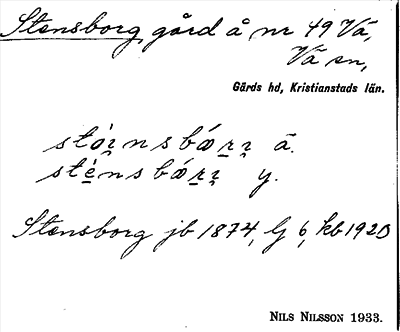 Stensborg gård å nr 49 Vä,
Vä sn,
Gärds hd, Kristianstads län.
ä.
y.
Stensborg jb 1874, Gj 6, kb 1920
NILS NILSSON 1933.